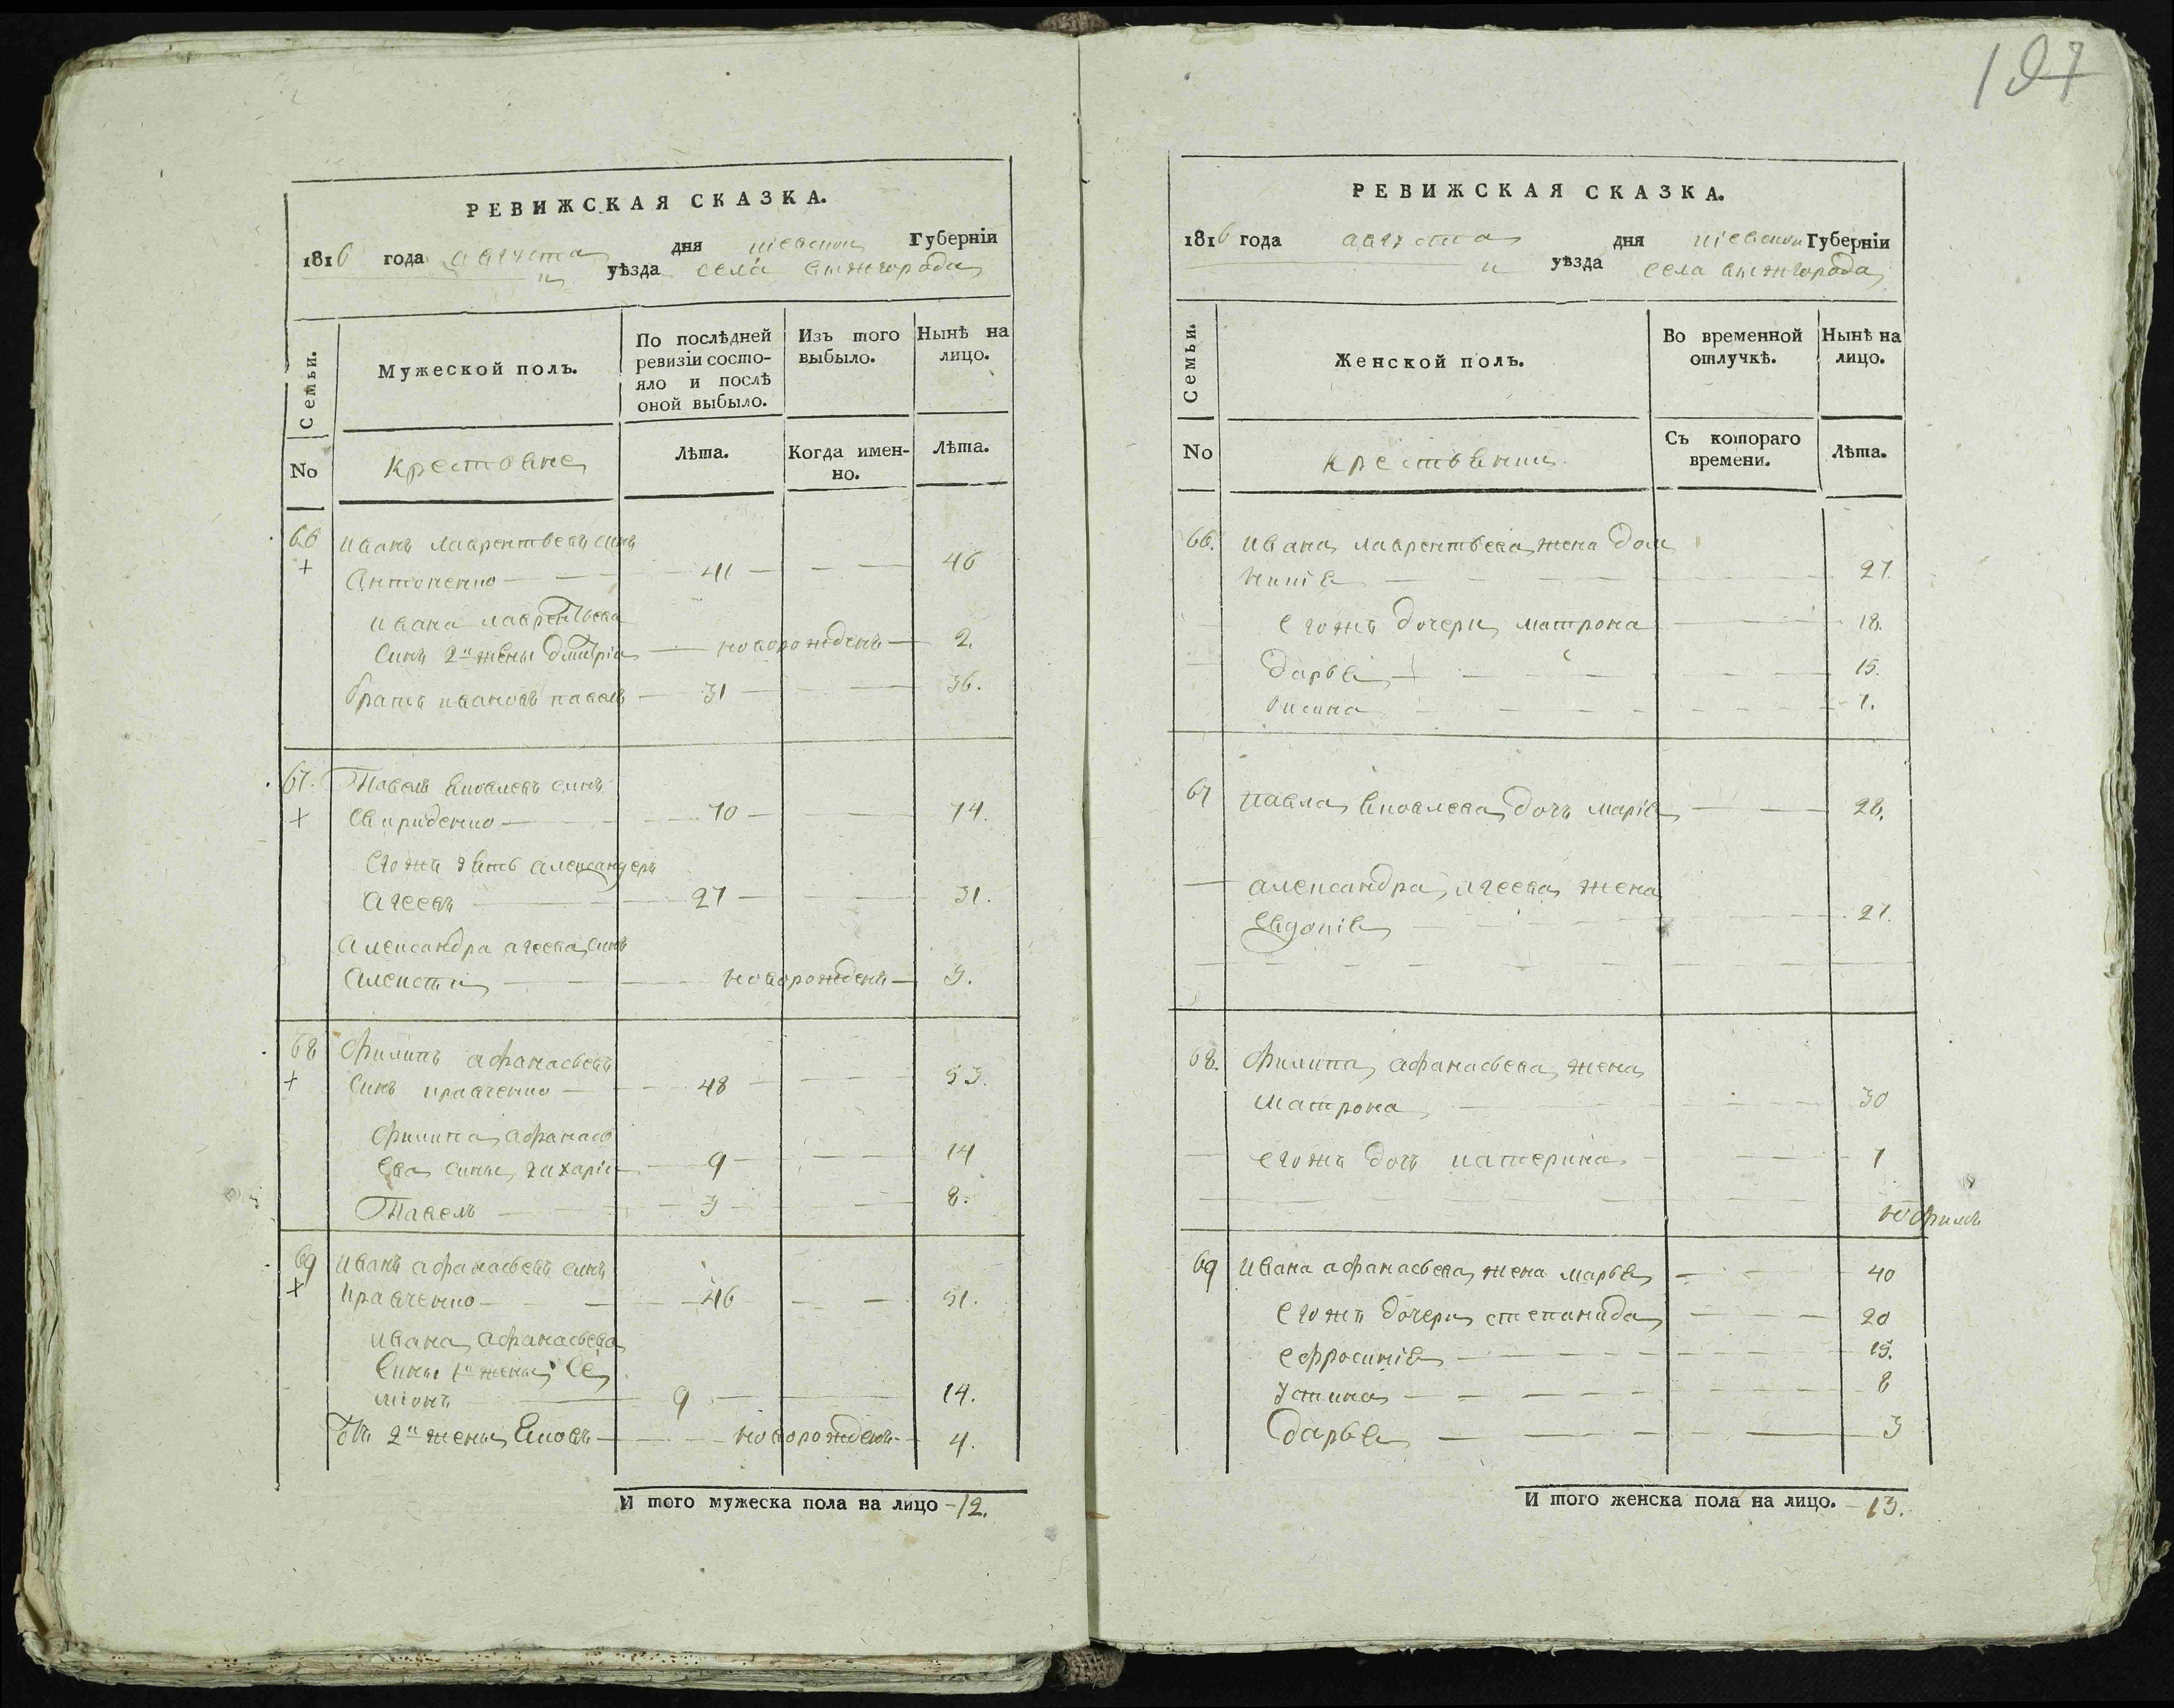 197
РЕВИЖСКАЯ СКАЗКА.
1816 года августа дня кіевской Губерніи
и уѣзда села вышгорода
Семьи.
Мужеской полъ.
По послѣдней ревизіи состо-
яло и послѣ оной выбыло.
Изъ того выбыло.
Нынѣ на лицо.
No
крестьяне
Лѣта.
Когда имен-
но.
Лѣта.
66 иванъ лаврентьевъ синъ
+ Антоненко 41 46
ивана лаврентьева
синъ 2й жены дмитрій новорожденъ 2.
братъ ивановъ павелъ 31 36.
67. Павелъ яковлевъ синъ
+ свириденко 70 74.
егожъ зять александеръ
агеевъ 27 31.
александра агеева синъ
алексѣй новорожденъ 3.
68 филипъ афанасьевъ
+ синъ кравченко 48 53.
филипа афанась
ева сины захарій 9 14
Павелъ 3 8.
69 иванъ афанасьевъ синъ
+ кравченко 46 51.
ивана афанасьева
сины 1й жены се
міонъ 9 14.
отъ 2й жены яковъ новорожденъ 4.
И того мужеска пола на лицо 12.
РЕВИЖСКАЯ СКАЗКА.
1816 года августа дня кіевской Губерніи
и уѣзда села вышгорода
Семьи.
Женской полъ.
Во временной отлучкѣ.
Нынѣ на лицо.
No
крестьянки
Съ котораго времени.
Лѣта.
66. ивана лаврентьева жена дом
никія 27.
егожъ дочери матрона 18.
дарья 15.
1.
67 павла яковлева дочь марія 28.
александра агеева жена
евдокія 27.
68. филипа афанасьева жена
матрона 30
егожъ дочь катерина 1
69 ивана афанасьева жена марья 40
егожъ дочери степанида 20
ефросинія 15.
устина 8
дарья 3
И того женска пола на лицо. 13.